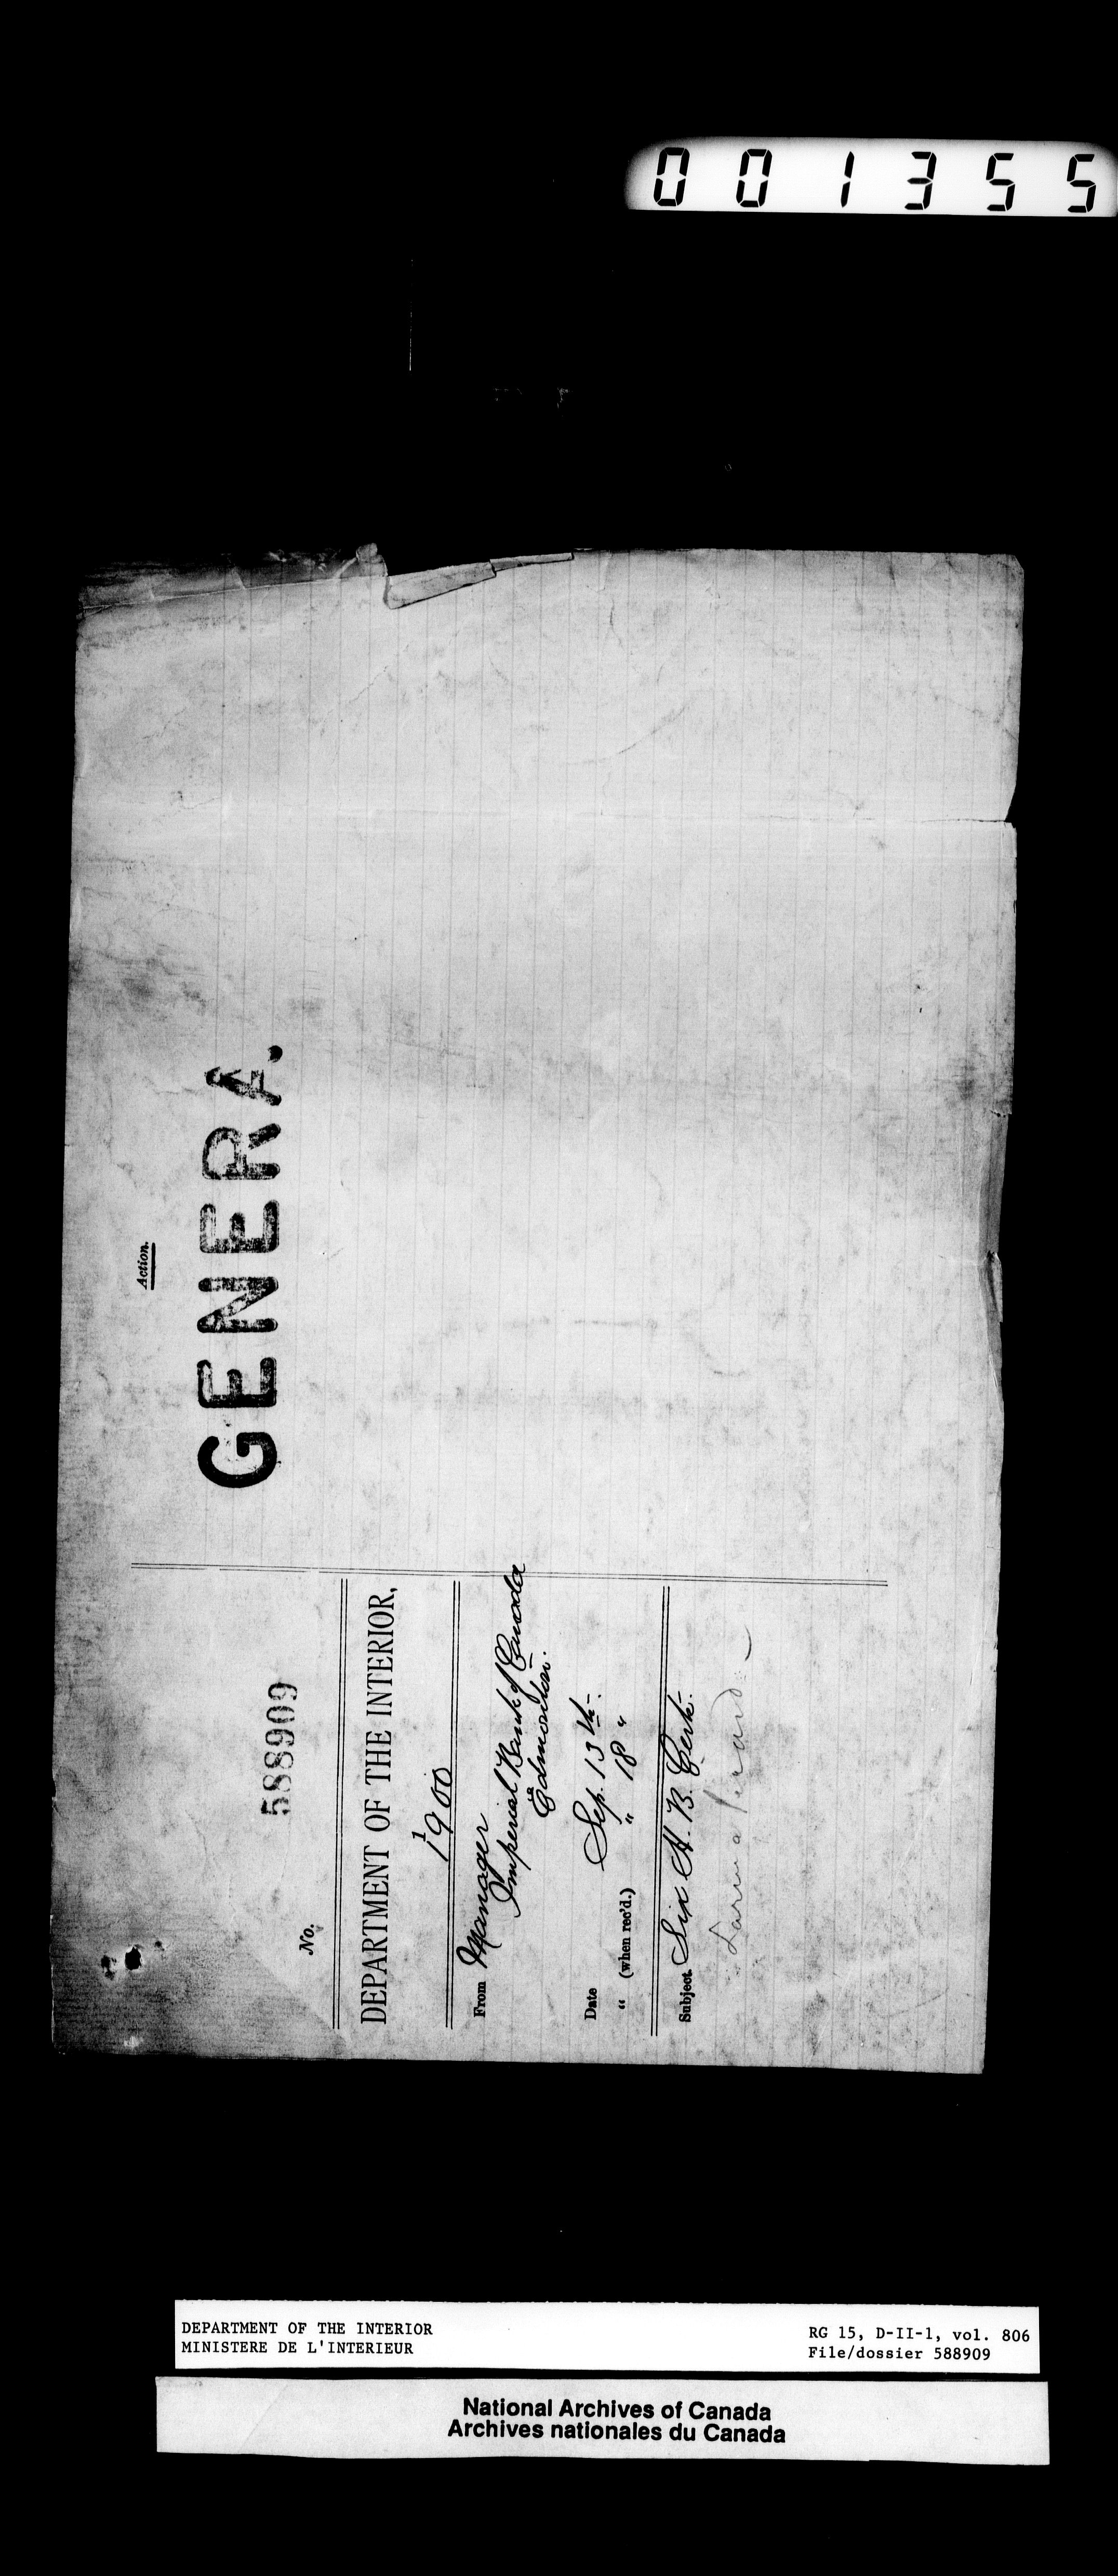 001355
Action.
GENERA.
No.
588909
DEPARTMENT OF THE INTERIOR,
1900
From Manager
Imperial Bank of Canada
Edmonton.
Date Sep. 13th.
" (when rec'd.) " 18 "
Subject. Six H. B. Certs.
DEPARTMENT OF THE INTERIOR
MINISTERE DE L'INTERIEUR
RG 15, D-II-1, vol. 806
File/dossier 588909
National Archives of Canada
Archives nationales du Canada